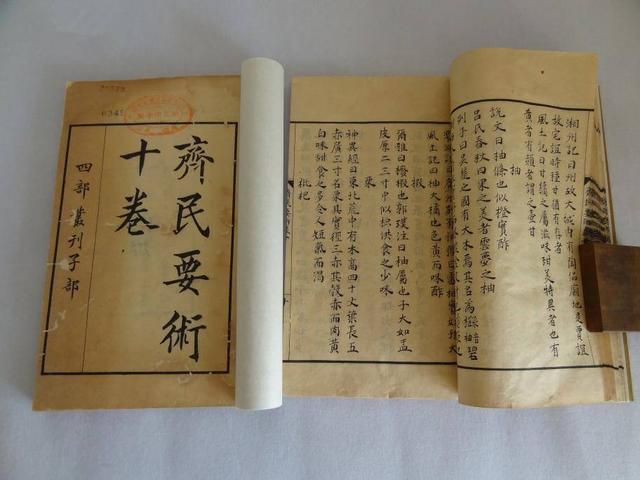 齊民要術
十卷
四部叢刊子部
湘州記曰州故大城內有陶侃廟地是賈誼
故宅誼時種甘猶有存者
風土記曰甘橘之屬滋味甜美特異者也有
黃者有頳者謂之壺甘
柚
說文曰柚條也似橙實酢
呂氏春秋曰果之美者雲夢之柚
列子曰吳楚之國有大木焉其名為櫾
風土記曰柚大橘也色黃而味酢
椵
爾雅曰櫠椵也郭璞注曰柚屬也子大如盂
皮厚二三寸中似枳供食之少味
栗
神異經曰東北荒中有木高四十丈葉長五
赤廣三寸名栗其實徑三赤其殼赤而肉黃
白味甜食之多令人短氣而渴
枇杷